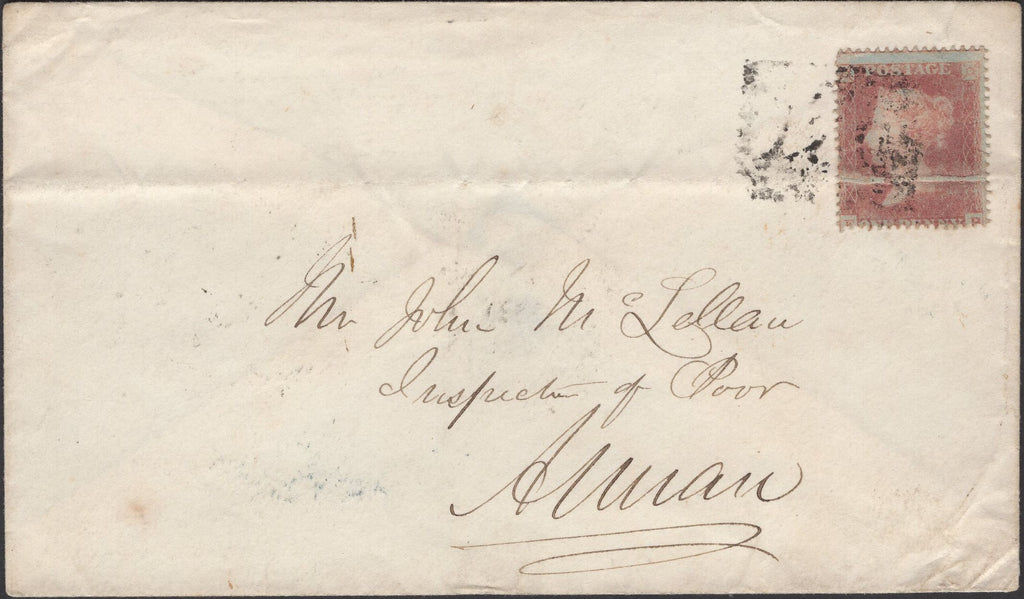 POSTAGE
Mr John McLellan
Inspector of Poor
Annan